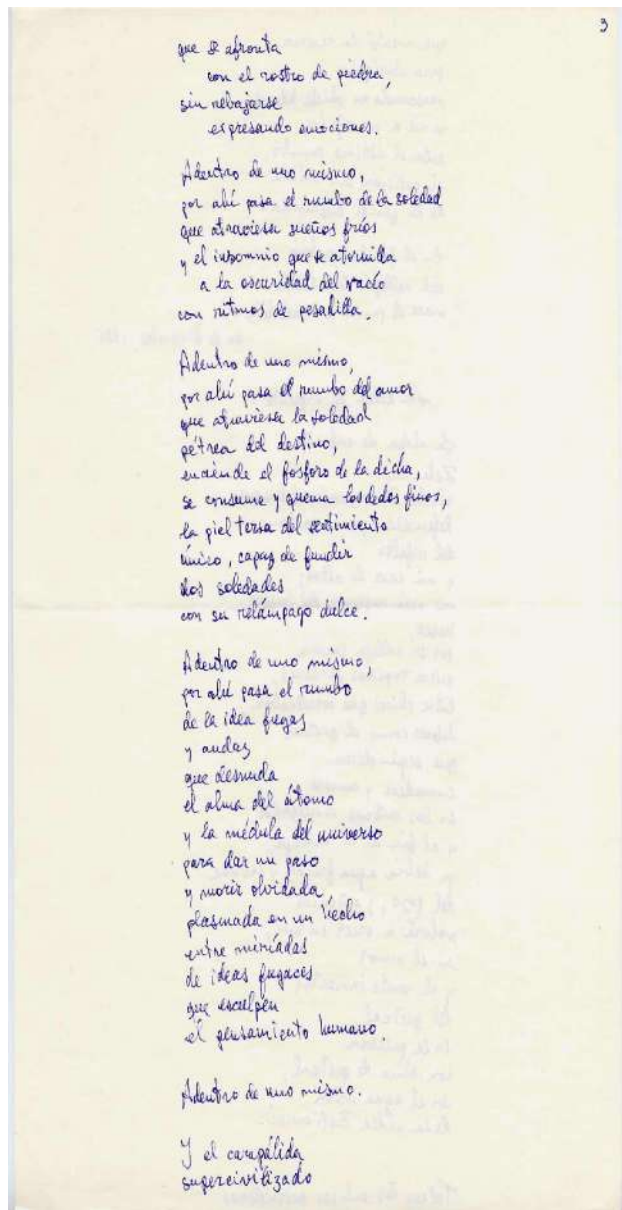 3
que se afronta
con el rostro de piedra,
sin rebajarse
expresando emociones.
Adentro de uno mismo,
por ahí pasa el rumbo de la soledad
que atraviesa sueños fríos
y el insomnio que se atornilla
a la oscuridad del vacío
con ritmos de pesadilla.
Adentro de uno mismo,
por ahí pasa el rumbo del amor
que atraviesa la soledad
pétrea del destino,
enciende el fósforo de la dicha,
se consume y quema los dedos finos,
la piel tersa del sentimiento
único, capaz de fundir
dos soledades
con su relámpago dulce.
Adentro de uno mismo,
por ahí pasa el rumbo
de la idea fugaz
y audaz
que desnuda
el alma del átomo
y la médula del universo
para dar un paso
y morir olvidada,
plasmada en un hecho
entre miríadas
de ideas fugaces
que esculpen
el pensamiento humano.
Adentro de uno mismo.
Y el carapálida
supercivilizado